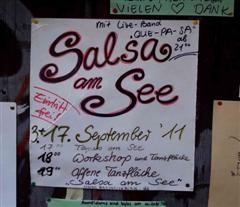 VIELEN DANK
mit Live-Band
"QUE-PA-SA"
ab
21⁰⁰
Salsa
am
See
Eintritt
frei!
3.+17. September '11
17⁰⁰ Tango am See
18⁰⁰ Workshop und Tanzfläche
19⁰⁰ offene Tanzfläche
"Salsa am See"